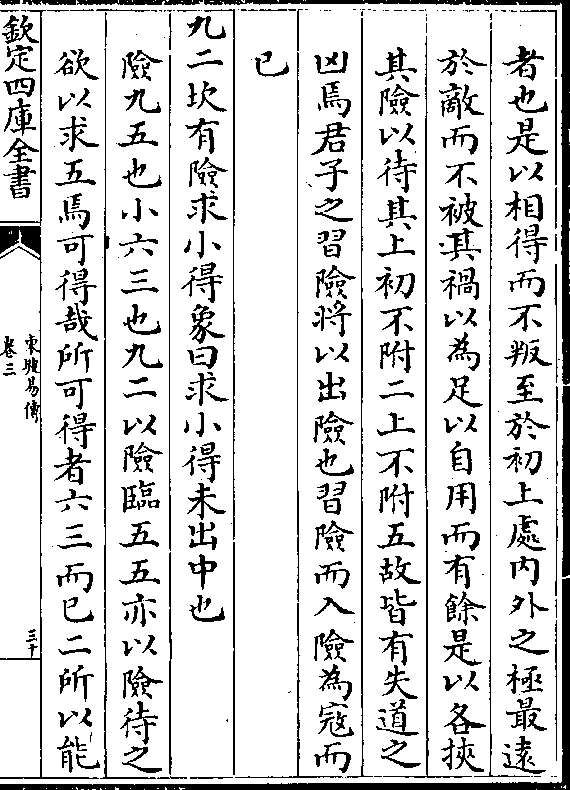 者也是以相得而不叛至於初上處内外之極最遠
於敵而不被其禍以為足以自用而有餘是以各挾
其險以待其上初不附二上不附五故皆有失道之
凶焉君子之習險將以出險也習險而入險為寇而
已
九二坎有險求小得象曰求小得未出中也
險九五也小六三也九二以險臨五五亦以險待之
欲以求五焉可得哉所可得者六三而已二所以能
欽定四庫全書
東坡易傳
卷三
三十